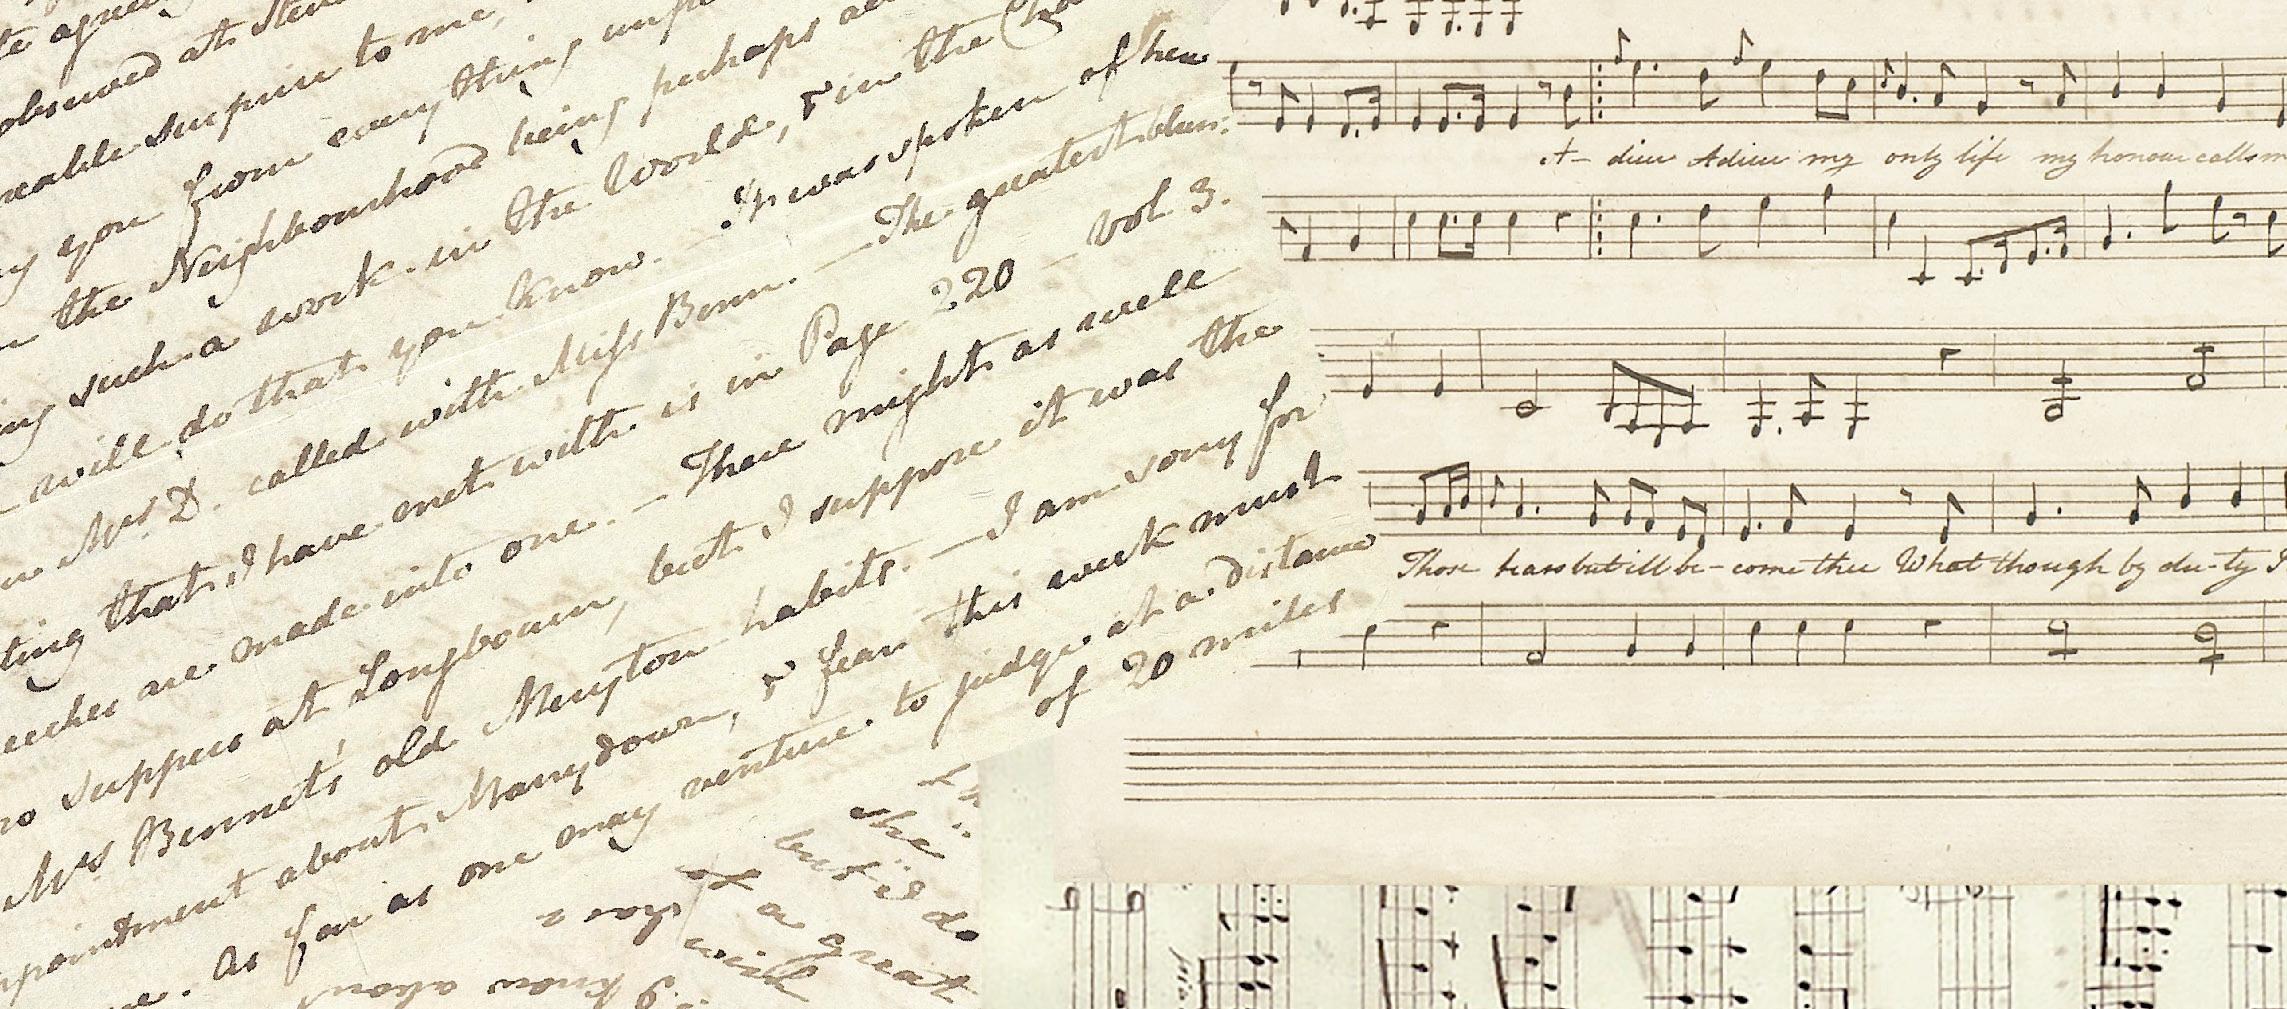 te agree
observed at Steve
reable surprise to me,
ng you from everything unp
n the Neighbourhood being perhaps
ing such a work in the World, & in the
will do that you know. — It was spoken of here
Mrs D. called with Miss Benn. — The greatest blun:
ting that I have met with is in Page 220 — Vol. 3.
eeches are made into one. — There might as well
no suppers at Longbourn, but I suppose it was the
Mrs Bennet's old Meryton habits. — I am sorry for
ppointment about Manydown, & fear this week must
as far as one may venture to judge at a distance
of 20 miles
she
but I do
of a great
wish
I know about
A- dieu Adieu my only life my honour calls m
Those tears but ill be- come thee What though by du-ty I